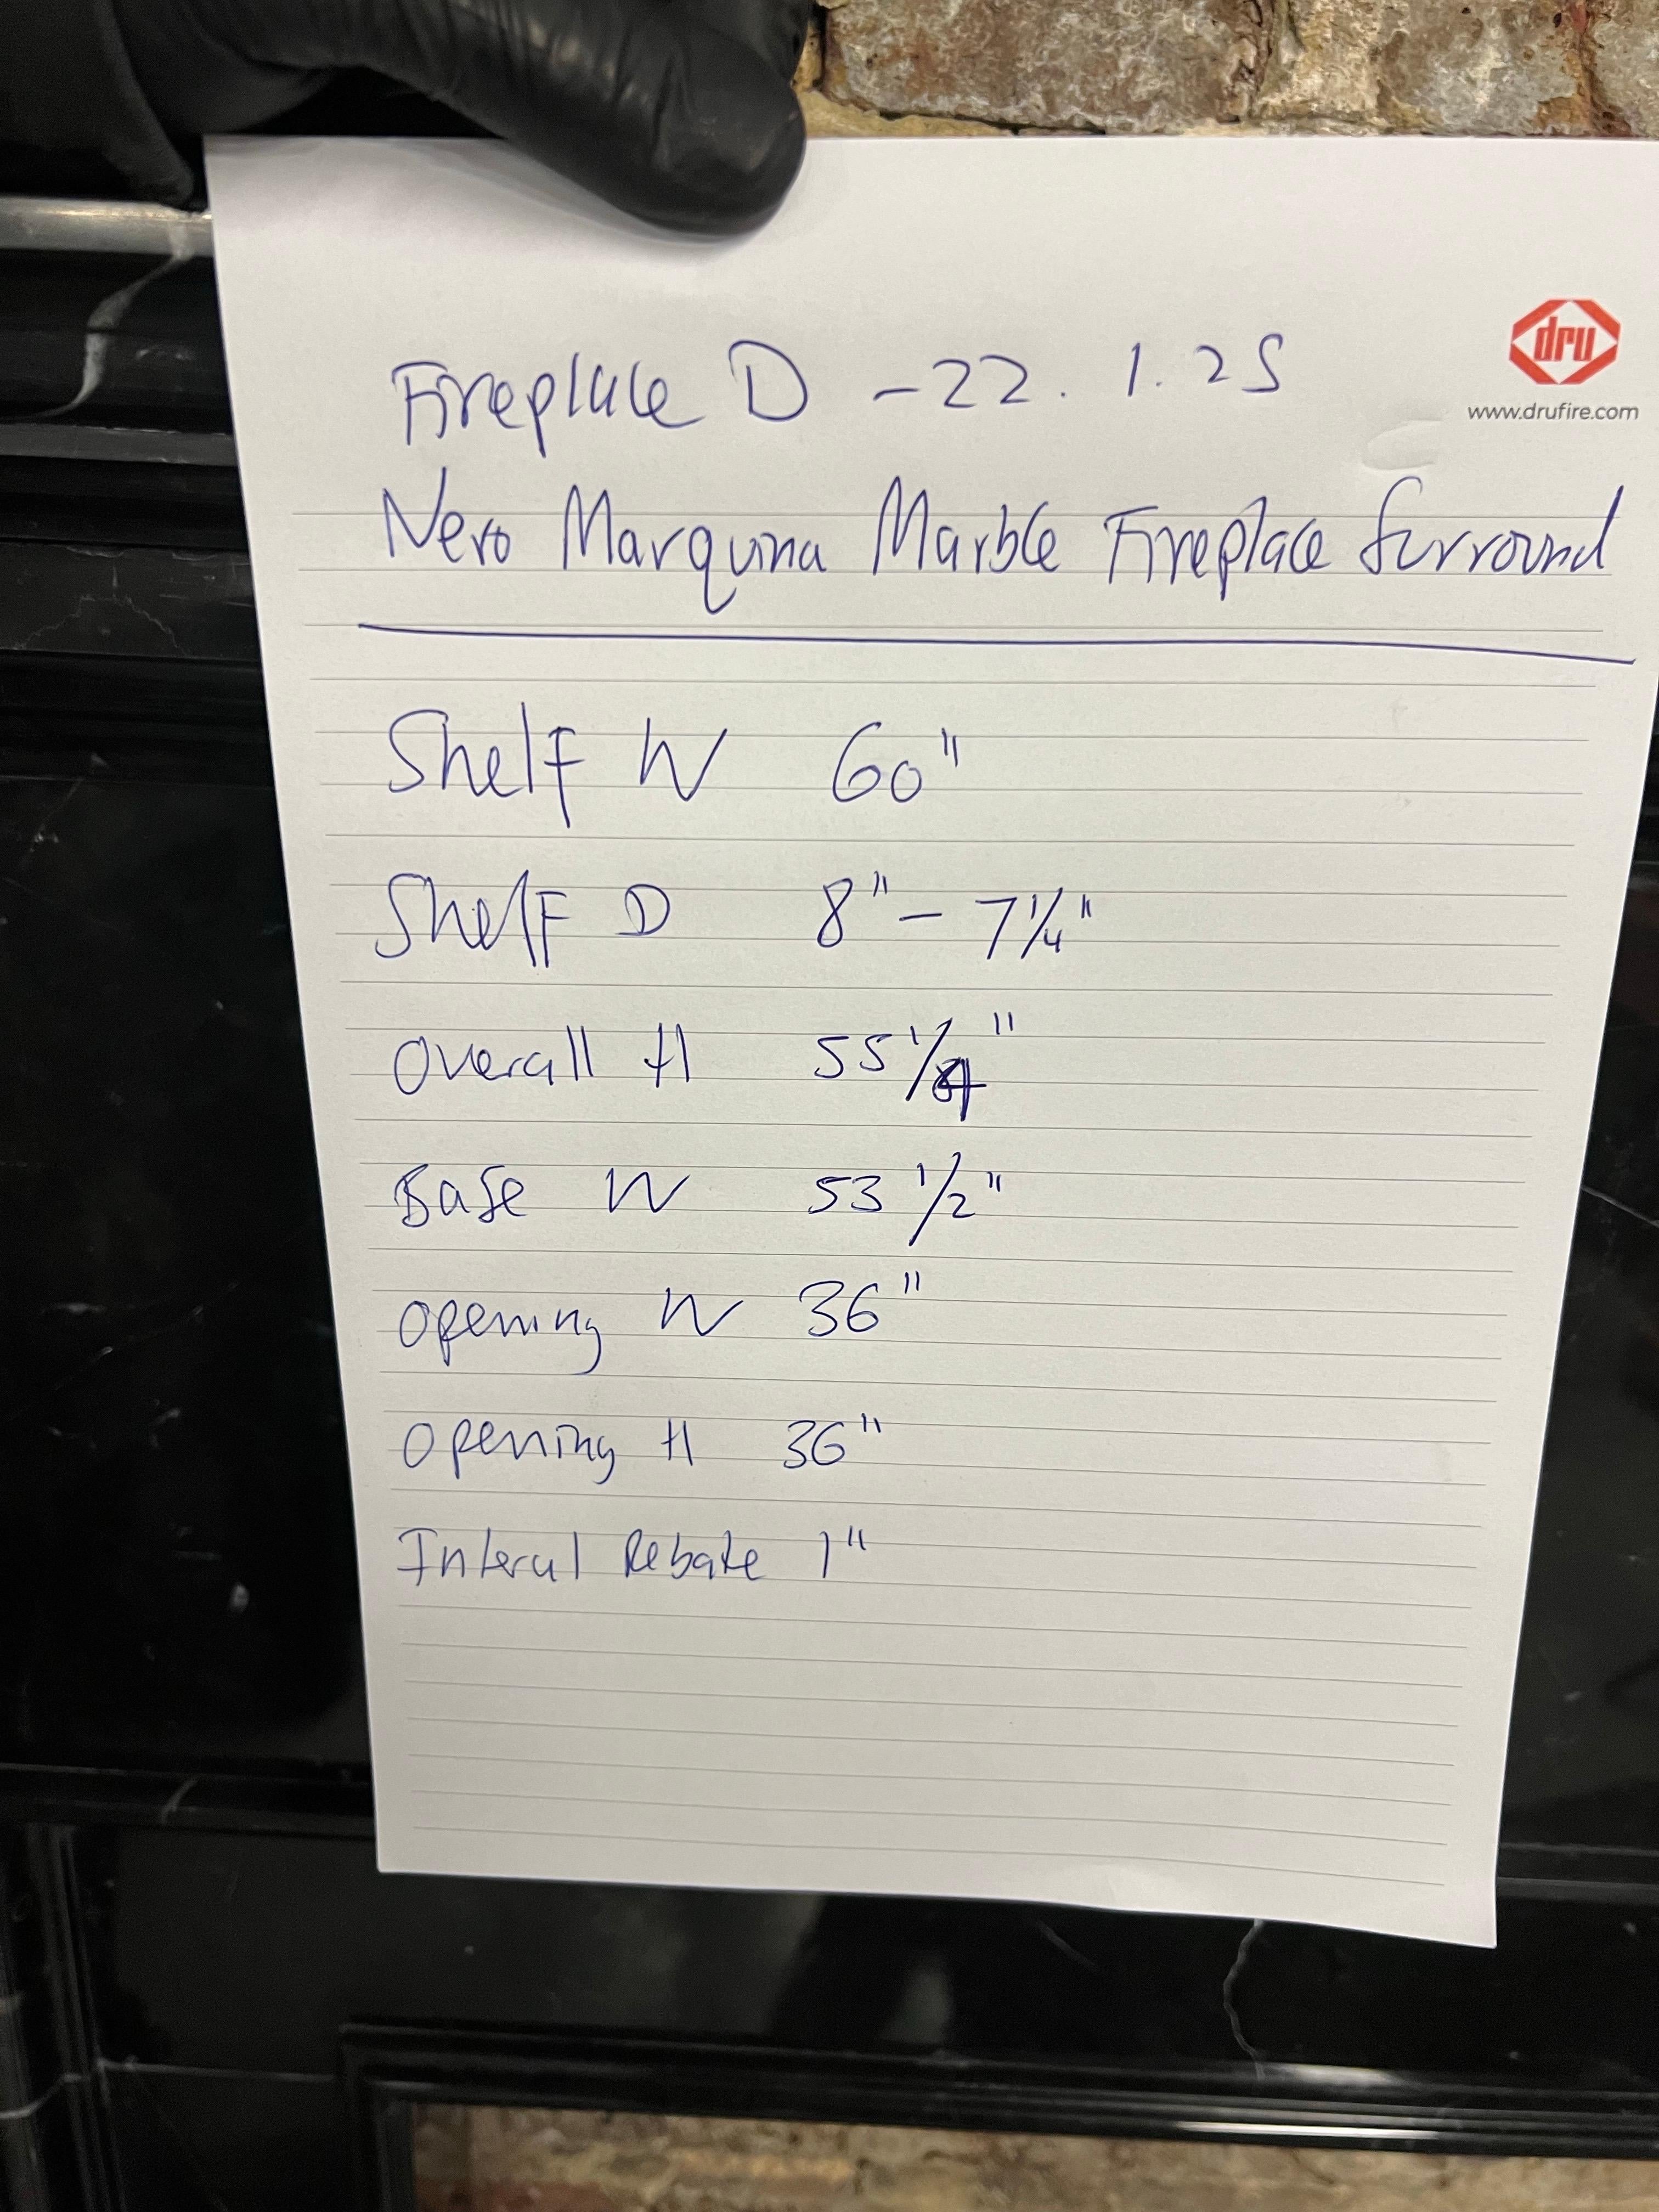 dru
www.drufire.com
Fireplace D - 22. 1. 25
Nero Marquina Marble Fireplace Surround
Shelf W 60"
Shelf D 8" - 7 1/4"
Overall H 55 1/4"
Base W 53 1/2"
Opening W 36"
Opening H 36"
Interal Rebate 1"